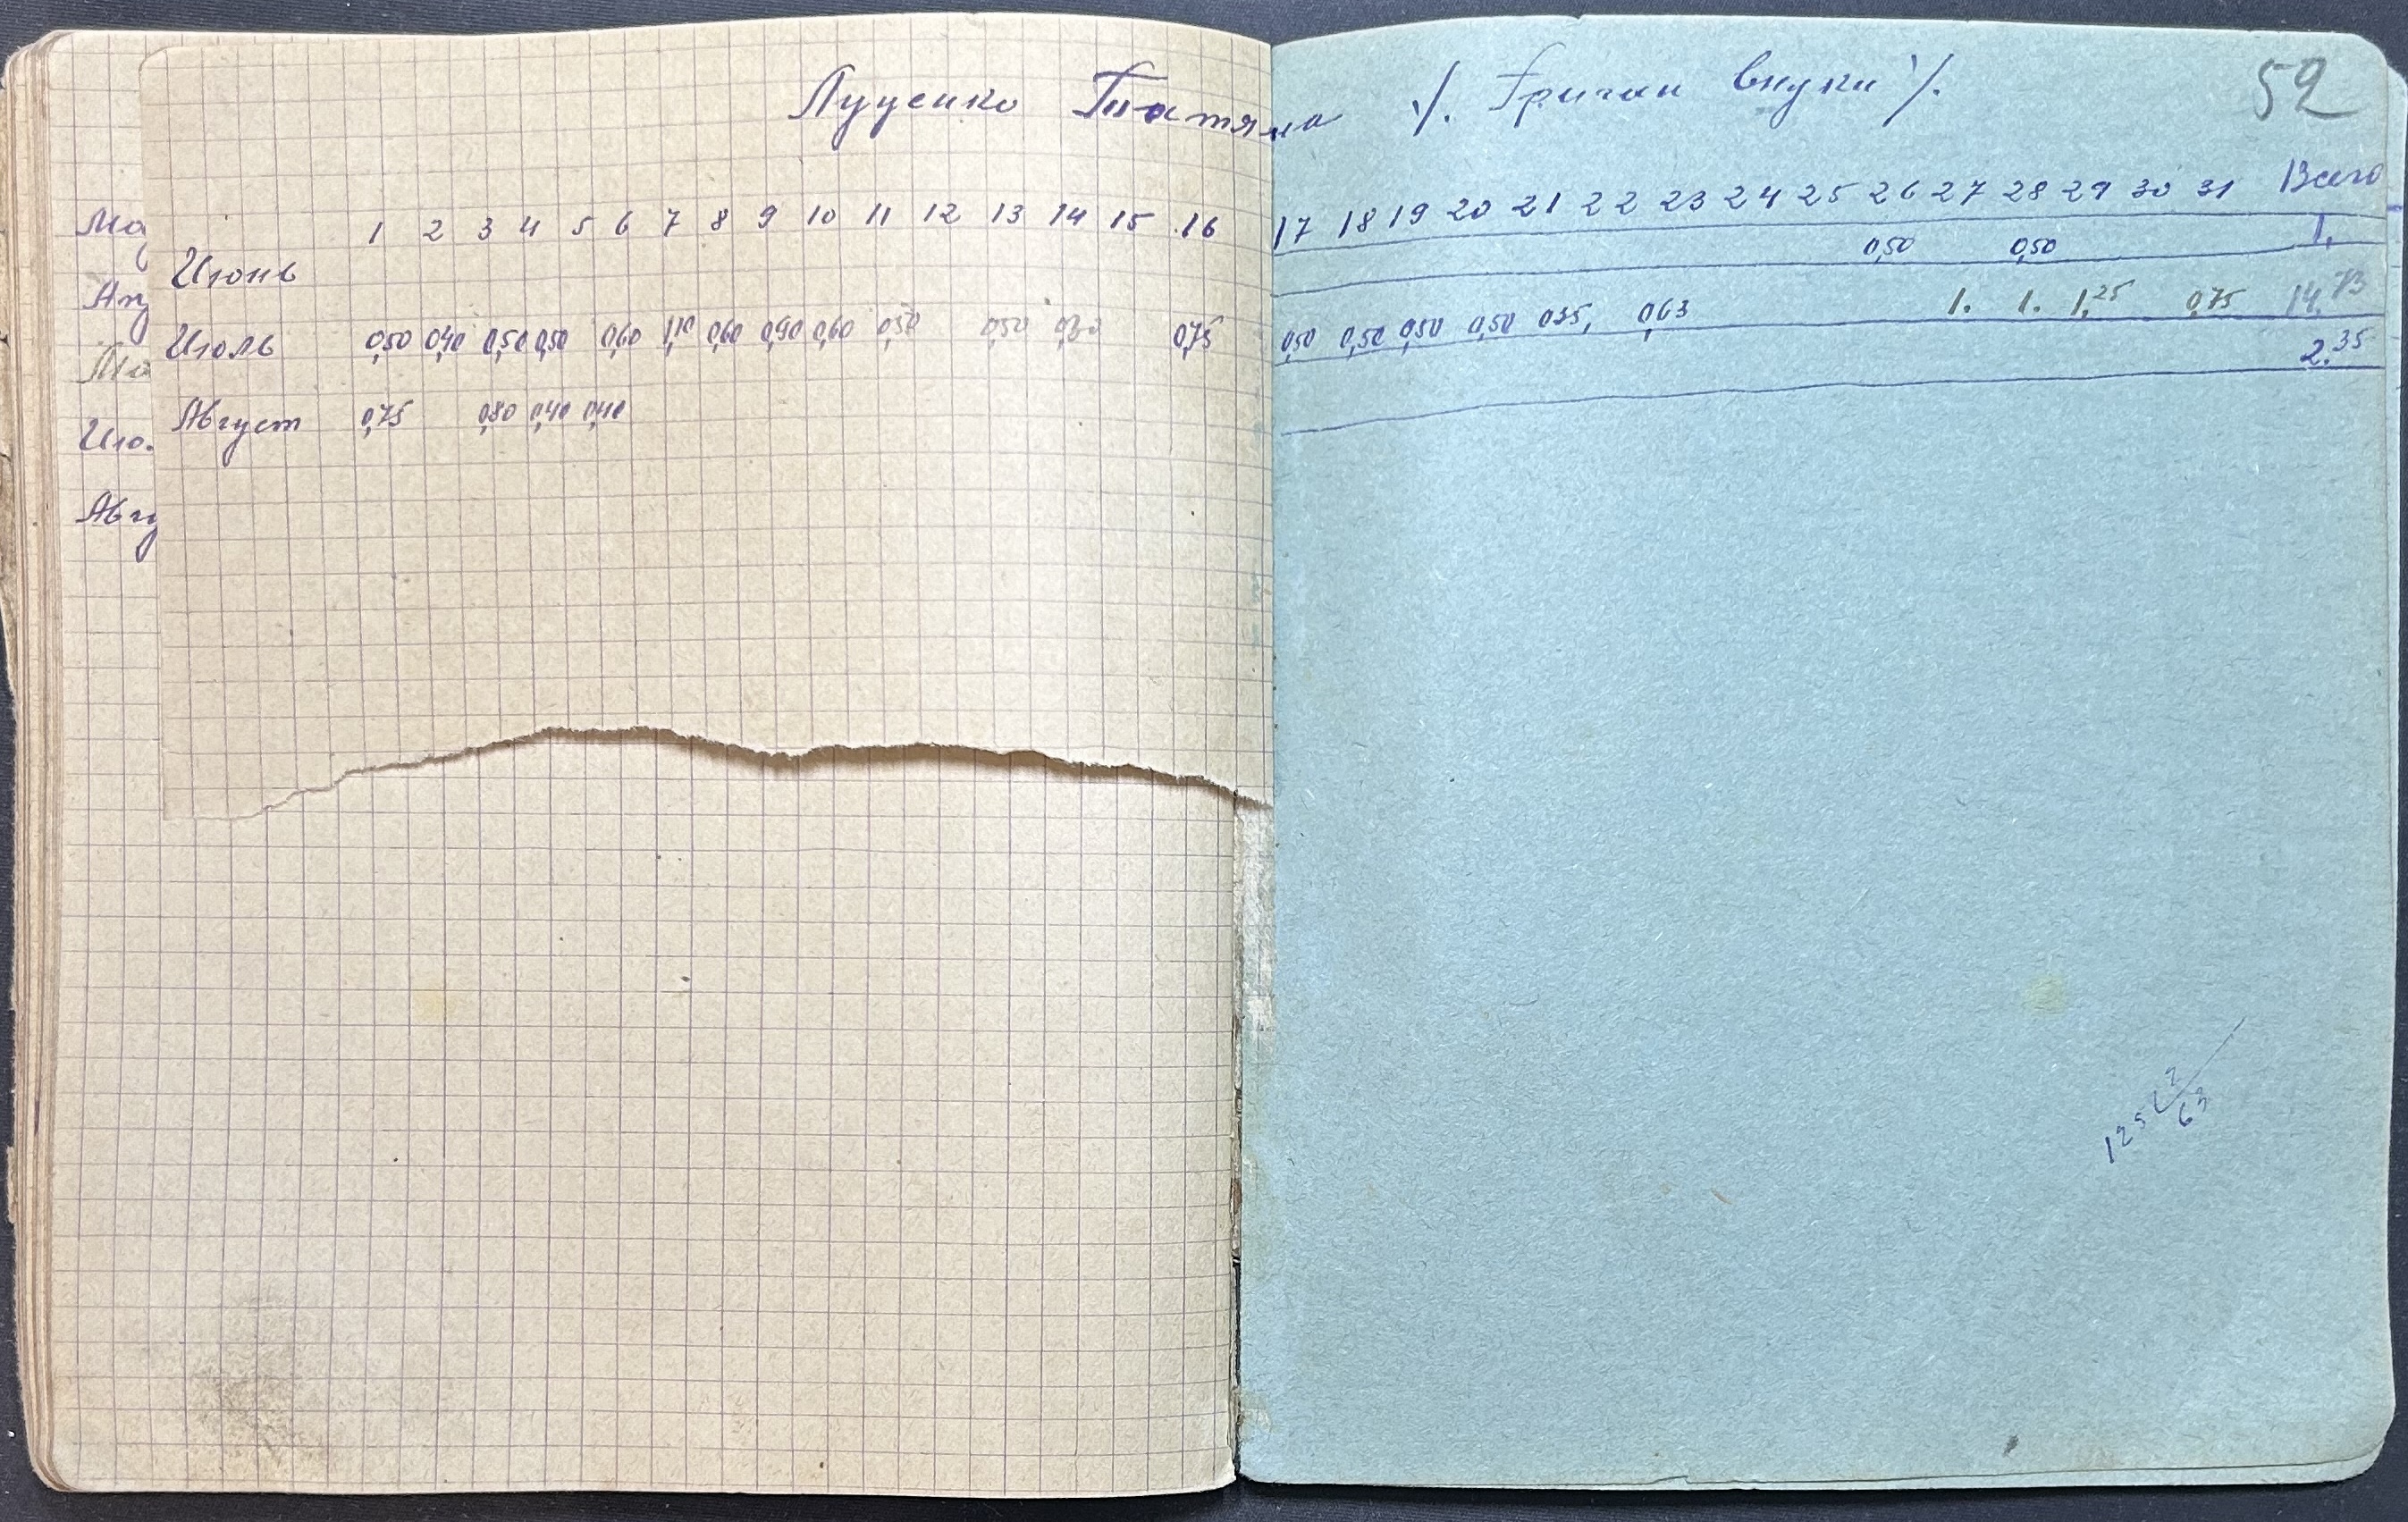 Луценко Татяна ./. Григан внуки ./.
52
1 2 3 4 5 6 7 8 9 10 11 12 13 14 15 16 17 18 19 20 21 22 23 24 25 26 27 28 29 30 31 Всего
Июнь 0,50 0,50 1.
Июль 0,50 0,40 0,50 0,50 0,60 1,10 0,60 0,90 0,60 0,50 0,50 0,30 0,75 0,50 0,50 0,50 0,50 035, 0,63 1. 1. 1,25 0,75 14.73
Август 0,75 0,80 0,40 0,40 2.35
Ма
Ап
Ма
Ию.
Авгу
125 2
63